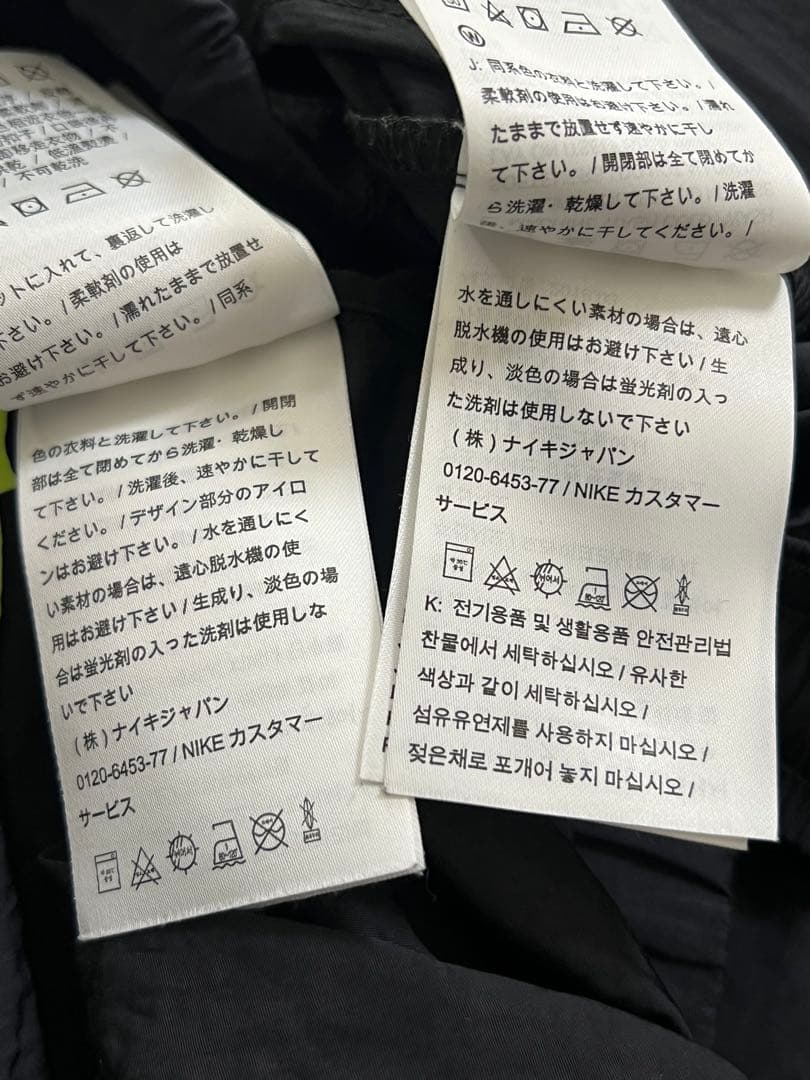 用干
移走衣物 /
/ 低溫製燙 /
/ 不可乾洗
ットに入れて、裏返して洗濯し
下さい。/ 柔軟剤の使用は
お避け下さい。/ 濡れたままで放置せ
ず速やかに干して下さい。/ 同系
色の衣料と洗濯して下さい。/ 開閉
部は全て閉めてから洗濯・乾燥し
て下さい。/ 洗濯後、速やかに干して
ください。/ デザイン部分のアイロ
ンはお避け下さい。/ 水を通しにく
い素材の場合は、遠心脱水機の使
用はお避け下さい / 生成り、淡色の場
合は蛍光剤の入った洗剤は使用しな
いで下さい
(株) ナイキジャパン
0120-6453-77 / NIKE カスタマー
サービス
W
J: 同系色の衣料と洗濯して下さい。/
柔軟剤の使用はお避け下さい。/ 濡れ
たままで放置せず速やかに干し
て下さい。/ 開閉部は全て閉めてか
ら洗濯・乾燥して下さい。/ 洗濯
後、速やかに干してください。/
水を通しにくい素材の場合は、遠心
脱水機の使用はお避け下さい / 生
成り、淡色の場合は蛍光剤の入っ
た洗剤は使用しないで下さい
(株) ナイキジャパン
0120-6453-77 / NIKE カスタマー
サービス
K: 전기용품 및 생활용품 안전관리법
찬물에서 세탁하십시오 / 유사한
색상과 같이 세탁하십시오 /
섬유유연제를 사용하지 마십시오 /
젖은채로 포개어 놓지 마십시오 /